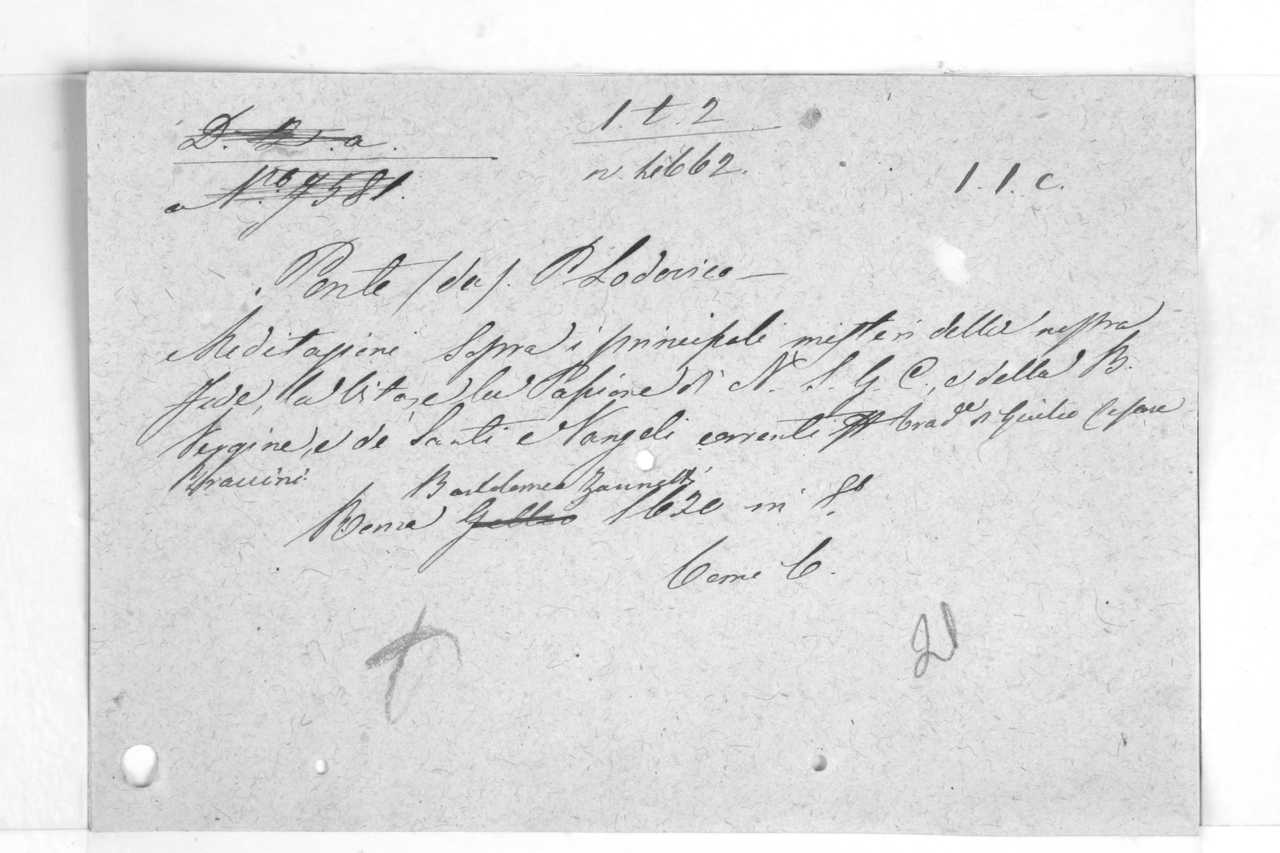 D. B. a.
1. t. 2
a Nro. 7581.
n. 662.
1. 1. c.
Ponte (da). P. Lodovico —
Meditazioni sopra i principali misteri della nostra
fede, la Vita, e la Passione di N. S. G. C., e della B.
Vergine, e de' Santi e Vangeli correnti trad.e di Giulio Cesare
Braccini
Bartolomeo Zannetti
Roma 1620 in 8.o
Come C.